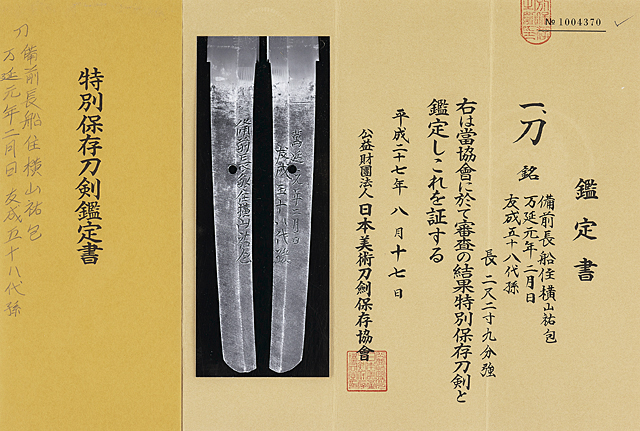 № 1004370
鑑定書
一、刀 銘
備前長船住横山祐包
万延元年二月日
友成五十八代孫
長 二尺二寸九分強
右は當協會に於て審査の結果特別保存刀剣と
鑑定しこれを証する
平成二十七年 八月十七日
公益財團法人 日本美術刀剣保存協會
備前長船住横山祐包
萬延元年二月日
友成五十八代孫
特別保存刀剣鑑定書
刀 備前長船住横山祐包
万延元年二月日 友成五十八代孫